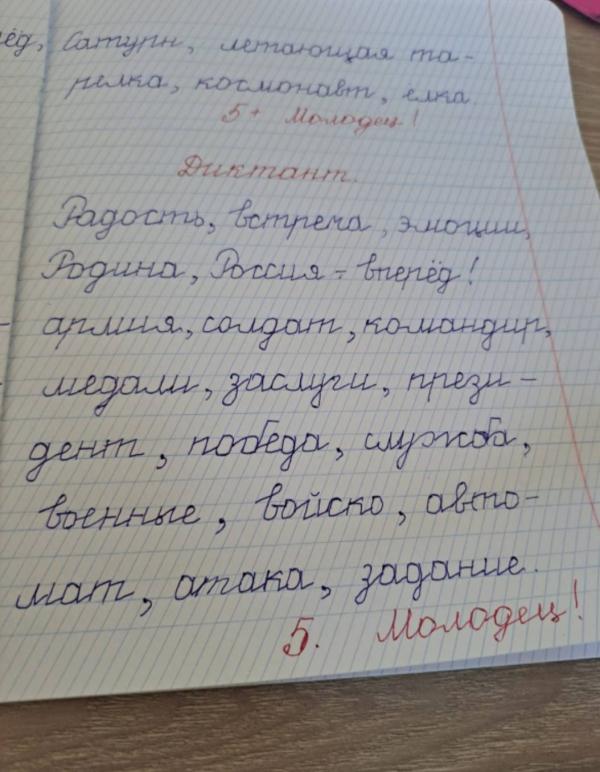 Сатурн, летающая та-
релка, космонавт, елка.
5+ Молодец!
Диктант.
Радость, встреча, эмоции,
Родина, Россия - вперёд!
армия, солдат, командир,
медали, заслуги, прези-
дент, победа, служба,
военные, войско, авто-
мат, атака, задание.
5. Молодец!